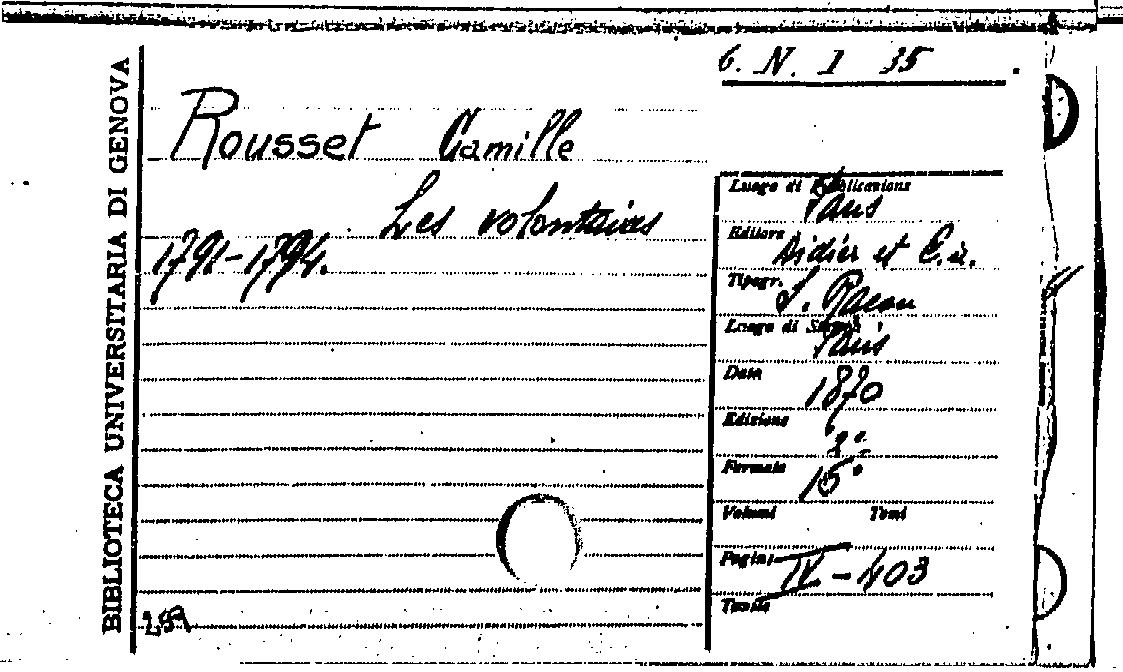 6. N. I 35
BIBLIOTECA UNIVERSITARIA DI GENOVA
Rousset Camille
Les volontaires
1791-1794.
Luogo di Pubblicazione
Paris
Editore
Didier et C.ie.
Tipogr.
S. Raçon
Luogo di Stampa
Paris
Data
1870
Edizione
Formato
15°
Volumi Tomi
Pagine
IV - 403
Tavole
289